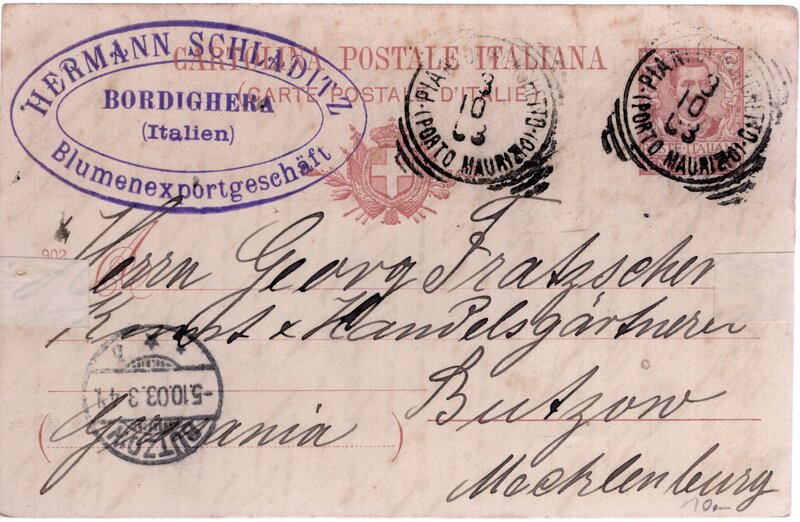 HERMANN SCHLADITZ
BORDIGHERA
(Italien)
Blumenexportgeschäft
CARTOLINA POSTALE ITALIANA
(CARTE POSTALE D'ITALIE)
3
10
03
(PORTO MAURIZIO)
3
10
03
(PORTO MAURIZIO)
902
Herrn Georg Fratzscher
Kunst & Handelsgärtnerei
Butzow
Germania
Mecklenburg
-5.10.03.3-4N
BUTZOW
10.-